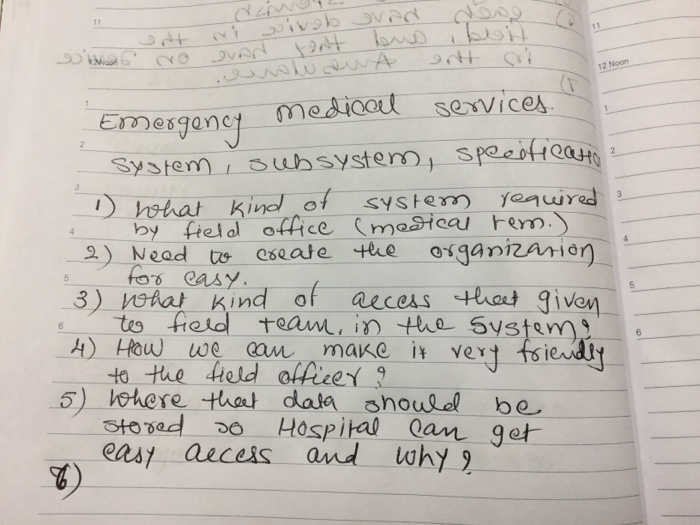 11
12 Noon
Emergency medical services.
system, subsystem, specificatio
1) what kind of system required
by field office (medical tem.)
2) Need to create the organization
for easy.
3) what kind of access that given
to field team, in the system?
4) How we can make it very friendly
to the field officer?
5) where that data should be
stored so Hospital can get
easy access and why?
6)
1
2
3
4
5
6
11
1
2
3
4
5
6